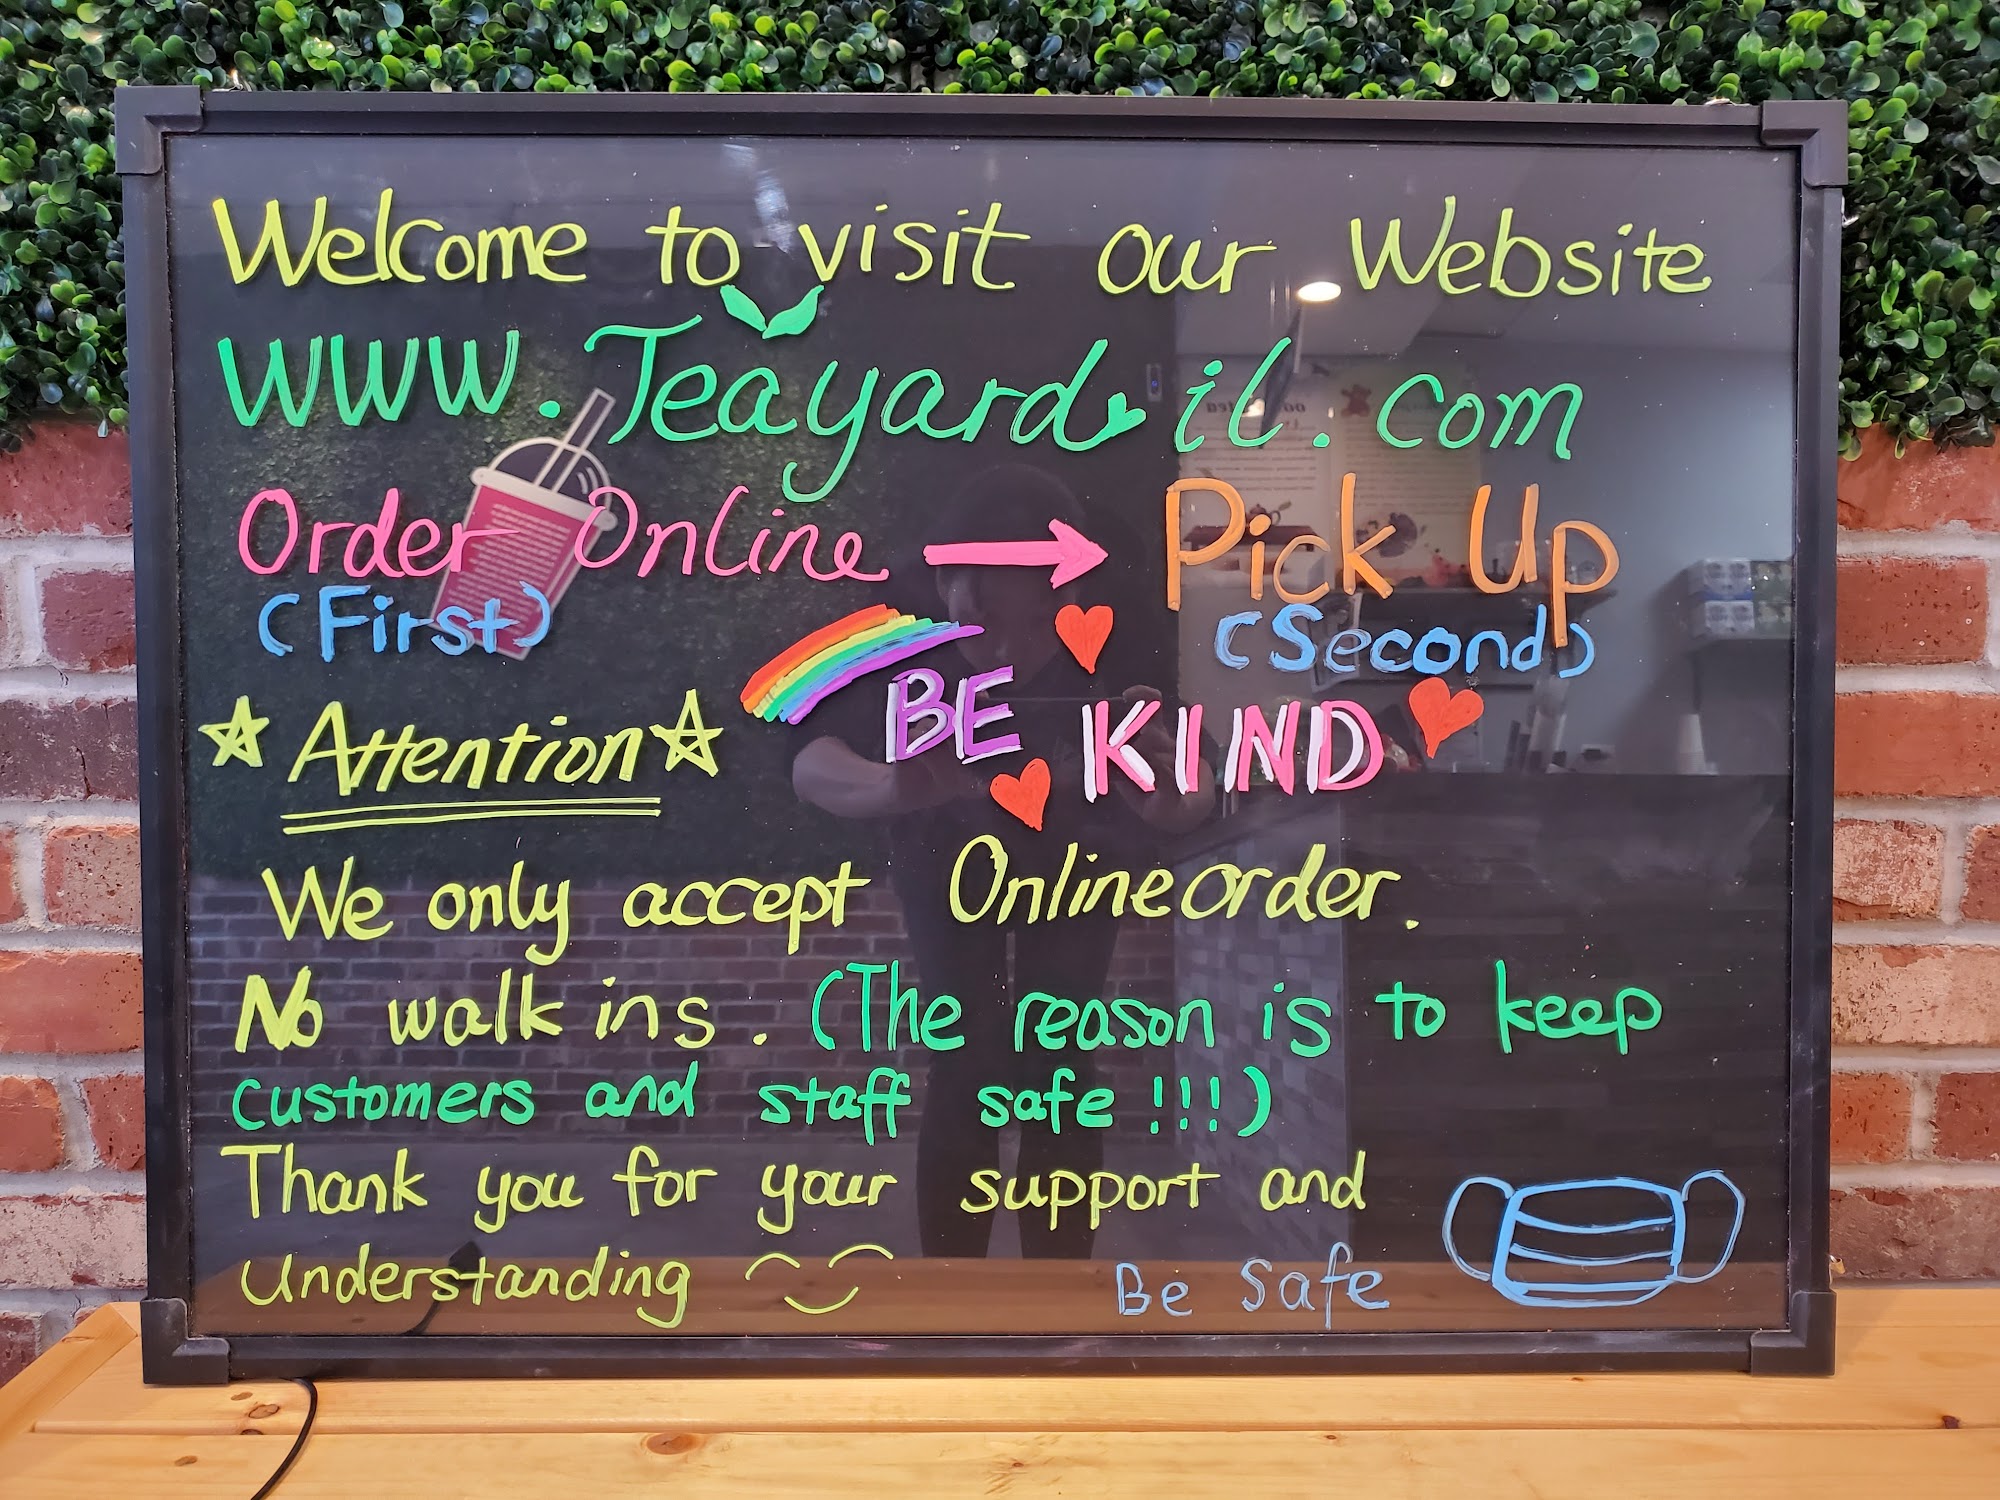 Welcome to visit our Website
WWW.Teayard.il.com
Order Online → Pick Up
(First) (Second)
☆ Attention ☆
BE KIND
We only accept Online order.
No walk ins. (The reason is to keep
customers and staff safe !!!)
Thank you for your support and
Understanding
Be Safe